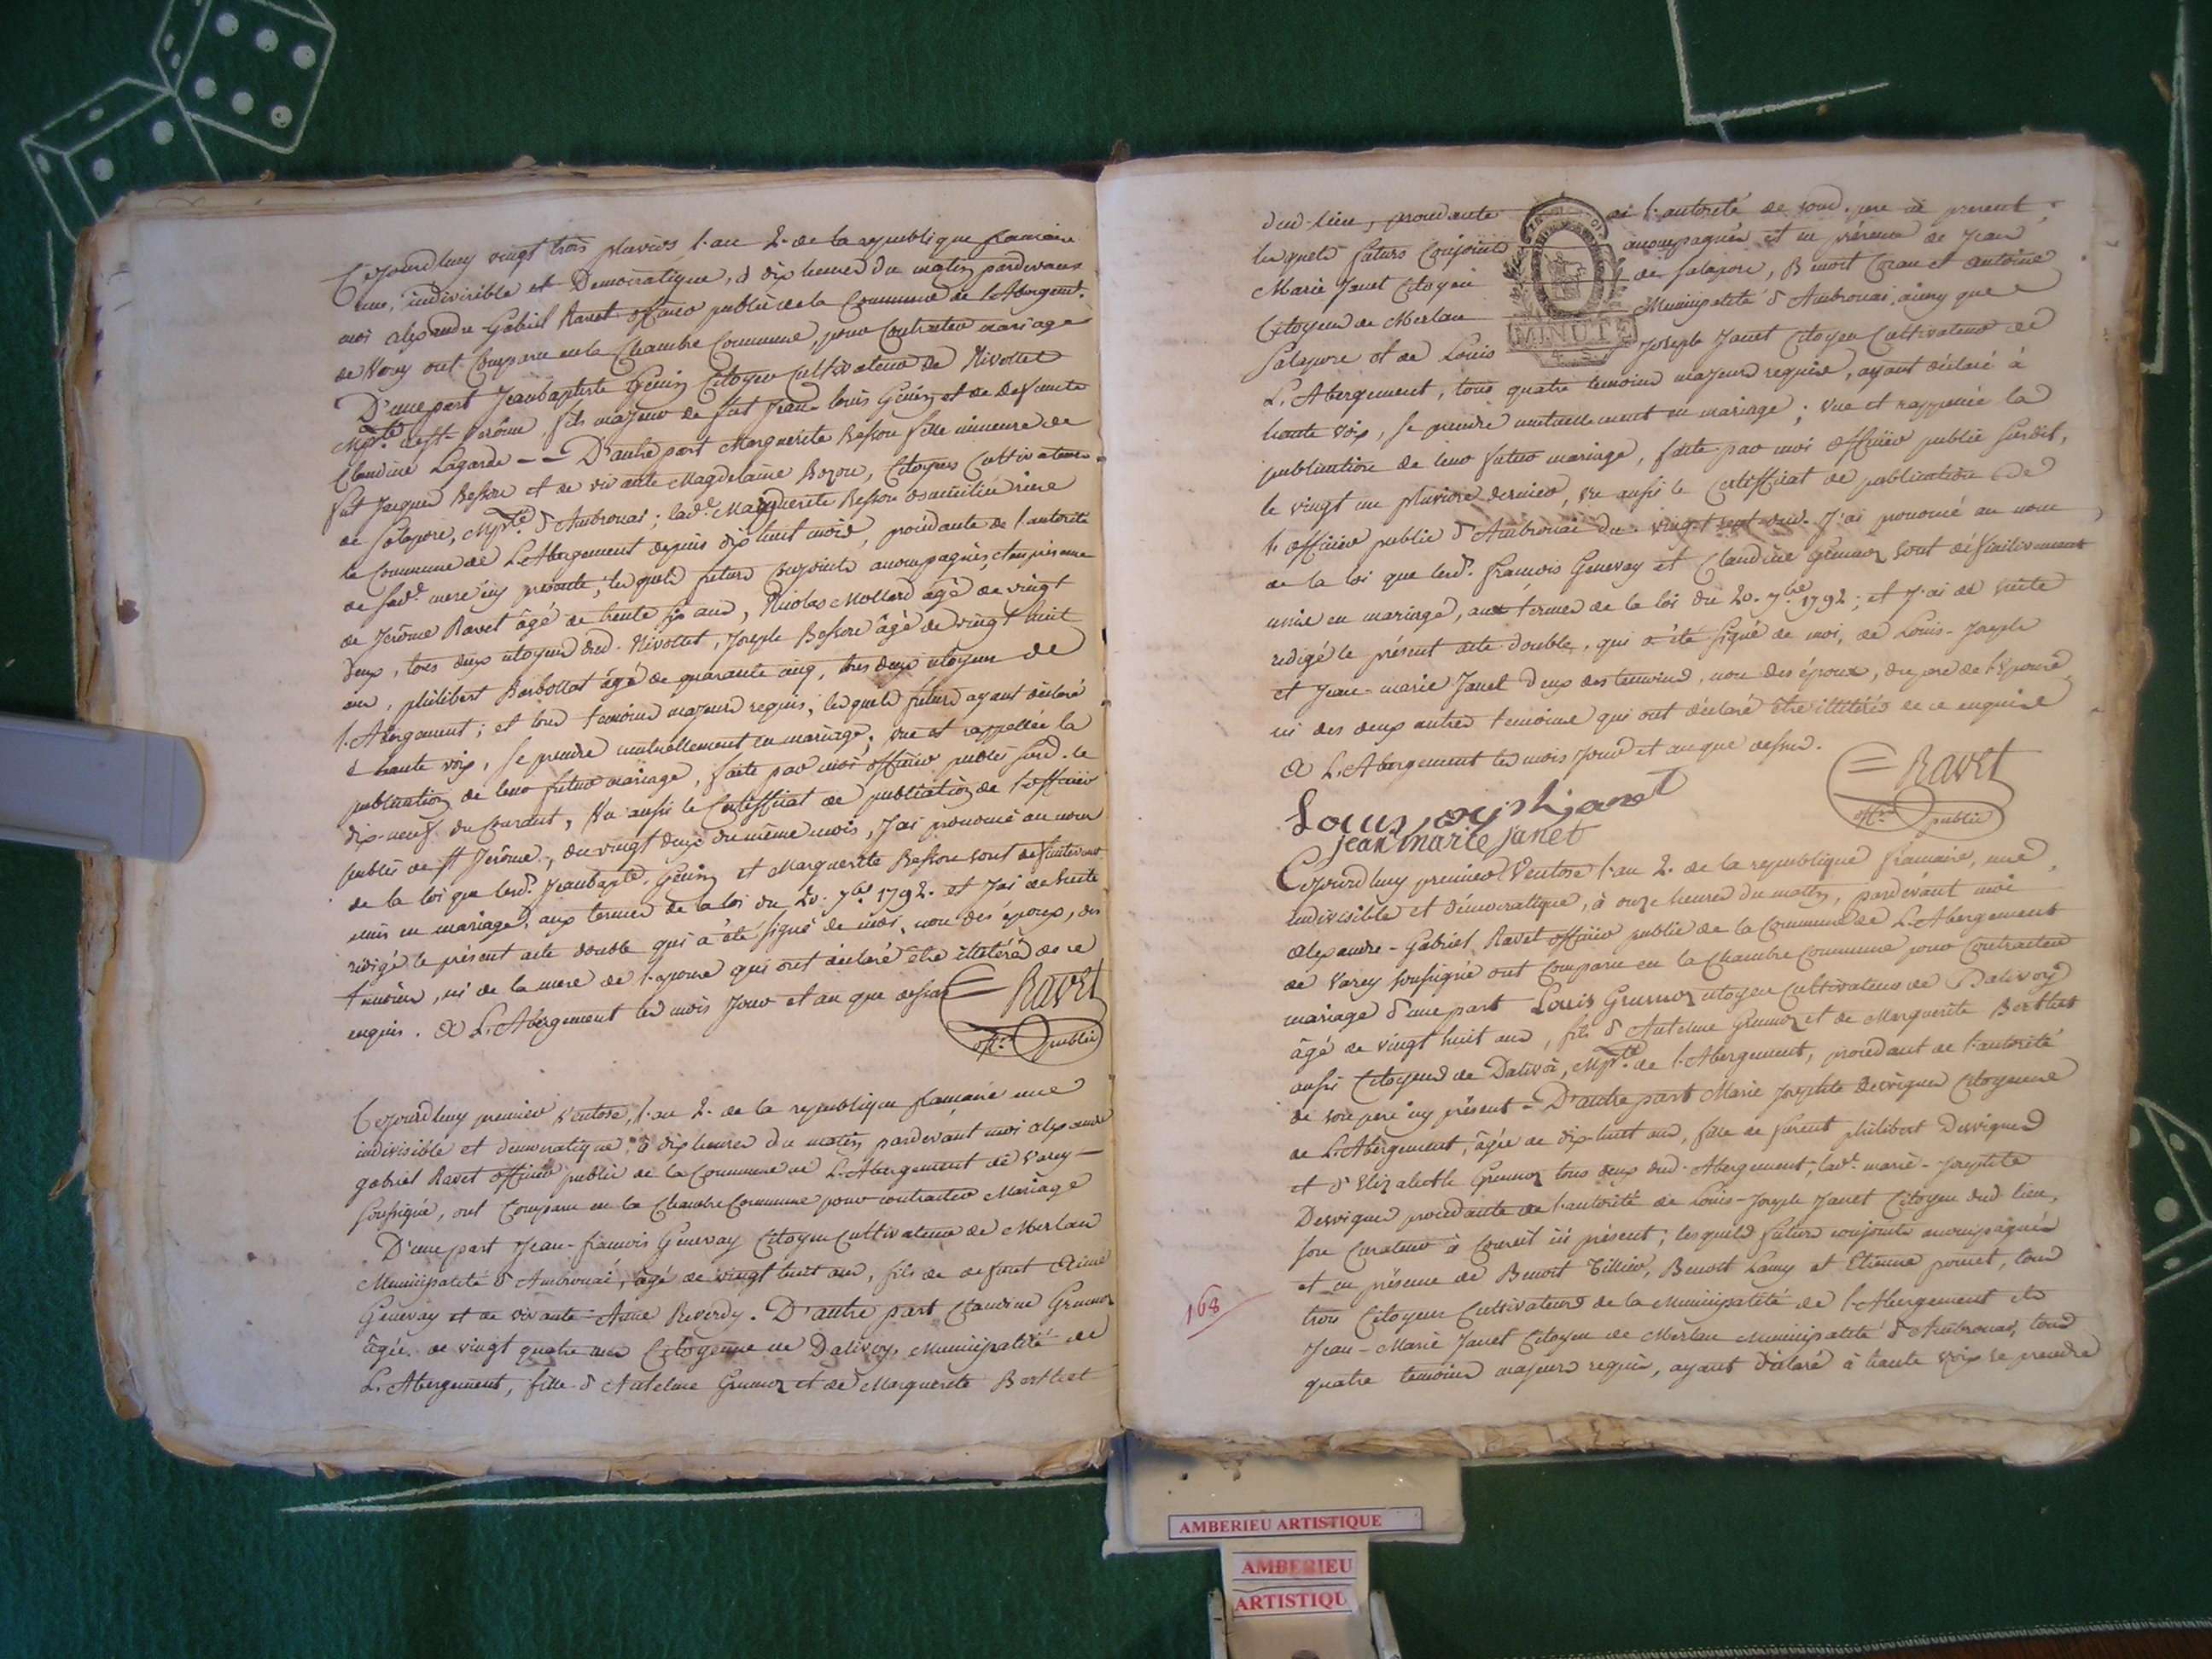 Cejourdhuy vingt trois pluvios l'an 2e de la republique francaise
une, indivisible et Democratique, à dix heures du matin pardevant
moi alexandre Gabriel Ravet officier public de la Commune de l'Abergemt
de Varey ont Comparu en la Chambre Commune, pour Contracter mariage
D'une part Jeanbaptiste Génin Citoyen Cultivateur de Nivollet
Mpté de St Jerôme, fils majeur de fut Jean Louis Génin et de defuncte
Claudine Lagarde - - D'autre part Marguerite Besson fille mineure de
fut Jacques Besson et de vivante Magdelaine Bozon, Citoyens Cultivateurs
de Salapore, Mpté d'Ambronai; lade Marguerite Besson domiciliée riere
la Commune de L'Abergement depuis dix huit mois, procédante de l'autorité
de sade mere icy presente, lesquels futurs conjoints accompagnés, et en presence
de Jerôme Ravet âgé de trente six ans, Nicolas Mollard âgé de vingt
deux, tous deux citoyens dud. Nivollet, Joseph Besson âgé de vingt huit
ans, philibert Barbollat âgé de quarante cinq, tous deux citoyens de
l'Abergement; et tous temoins majeurs requis, lesquels futurs ayant déclaré
à haute voix, se prendre mutuellement en mariage; vue et rappellée la
publication de leur futur mariage, faite par moi officier public susd. le
dix-neuf du courant, Vu aussi le Certifficat de publication de l'officier
public de St Jerôme, du vingt deux du même mois, J'ai prononcé au nom
de la loi que lesds Jeanbapte Génin et Marguerite Besson sont definitivemt
unis en mariage, aux termes de la loi du 20. 7bre 1792. et J'ai de suite
redigé le présent acte double qui a été signé de moi, non des époux, des
temoins, ni de la mere de l'epouse qui ont déclaré etre illiterés de ce
enquis. A L'Abergement les mois Jour et an que dessus
Ravet
offer public
Cejourdhuy premier ventose, l'an 2e de la republique francaise une
indivisible et democratique, à dix heures du matin pardevant moi alexandre
gabriel Ravet officier public de la Commune de L'Abergement de varey
soussigné, ont Comparu en la Chambre Commune pour contracter Mariage
D'une part Jean-francois Genevay Citoyen Cultivateur de Merlan
Municipalité d'Ambronai, âgé de vingt huit ans, fils de defunt Aimé
Genevay et de vivante Anne Reverdy. D'autre part Claudine Grumoz
âgée de vingt quatre ans Citoyenne de Dalivoy, Municipalité de
L'Abergement, fille d'Antelme Grumoz et de Marguerite Berthet
dud. lieu, procedante de l'autorité de soud. pere ici present;
lesquels futurs Conjoints accompagnés et en présence de Jean
Marie Janet Citoyen de Salapore, Benoit Cozan et Antoine
Citoyens de Merlan Municipalité d'Ambronai, ainsy que
Salapore et de Louis Joseph Janet Citoyen Cultivateur de
MINUTE
L'Abergement, tous quatre temoins majeurs requis, ayant déclaré à
haute voix, se prendre mutuellement en mariage; vue et rappellée la
publication de leur futur mariage, faite par moi officier public susdit,
le vingt un pluviose dernier, vu aussi le Certifficat de publication de
l'officier public d'Ambronai du vingt sept dud. J'ai prononcé au nom
de la loi que lesds. francois Genevay et Claudine Grumoz sont définitivement
unis en mariage, aux termes de la loi du 20. 7bre 1792; et J'ai de suite
redigé le présent acte double, qui a été signé de moi, de Louis-Joseph
et Jean-marie Janet deux des temoins, non des époux, du pere de l'Epouse
ni des deux autres temoins qui ont déclaré etre illiterés de ce enquis
A L'Abergement les mois Jour et an que dessus.
Ravet
offer public
Louis joseph janet
jean marie janet
Cejourdhuy premier Ventose l'an 2e de la republique francaise, une
indivisible et démocratique, à onze heures du matin, pardevant moi
Alexandre-Gabriel Ravet officier public de la Commune de L'Abergement
de Varey soussigné ont Comparu en la Chambre Commune pour Contracter
mariage d'une part Louis Grumoz citoyen Cultivateur de Dalivoy
âgé de vingt huit ans, fils d'Antelme Grumoz et de Marguerite Berthet
aussi Citoyens de Dalivoi, Mpté de l'Abergement, procedant de l'autorité
de son pere icy présent - D'autre part Marie Josephte Dervigues Citoyenne
de L'Abergement, âgée de dix-huit ans, fille de furent philibert Dervigues
et d'Elizabeth Grumoz tous deux dud. Abergement; lade marie-Josephte
Dervigues procedante de l'autorité de Louis-Joseph Janet Citoyen dud lieu,
son Curateur à Conseil ici présent; lesquels futurs conjoints accompagnés
et en présence de Benoit Tillier, Benoit Lamy et Etienne poncet, tous
trois Citoyens Cultivateurs de la Municipalité de l'Abergement et de
168
Jean-Marie Janet Citoyen de Merlan Municipalité d'Ambronai, tous
quatre temoins majeurs requis, ayant déclaré à haute voix se prendre
AMBERIEU ARTISTIQUE
AMBERIEU
ARTISTIQU